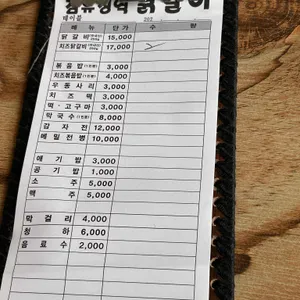 테이블 202
메뉴 단가 수량
닭갈비 15,000
치즈닭갈비 17,000
볶음밥(1인분) 3,000
치즈볶음밥(1인분) 4,000
우동사리 3,000
치즈떡 3,000
떡·고구마 3,000
막국수(1인분) 8,000
감자전 12,000
메밀전병 10,000
애기밥 3,000
공기밥 1,000
소주 5,000
맥주 5,000
막걸리 4,000
청하 6,000
음료수 2,000